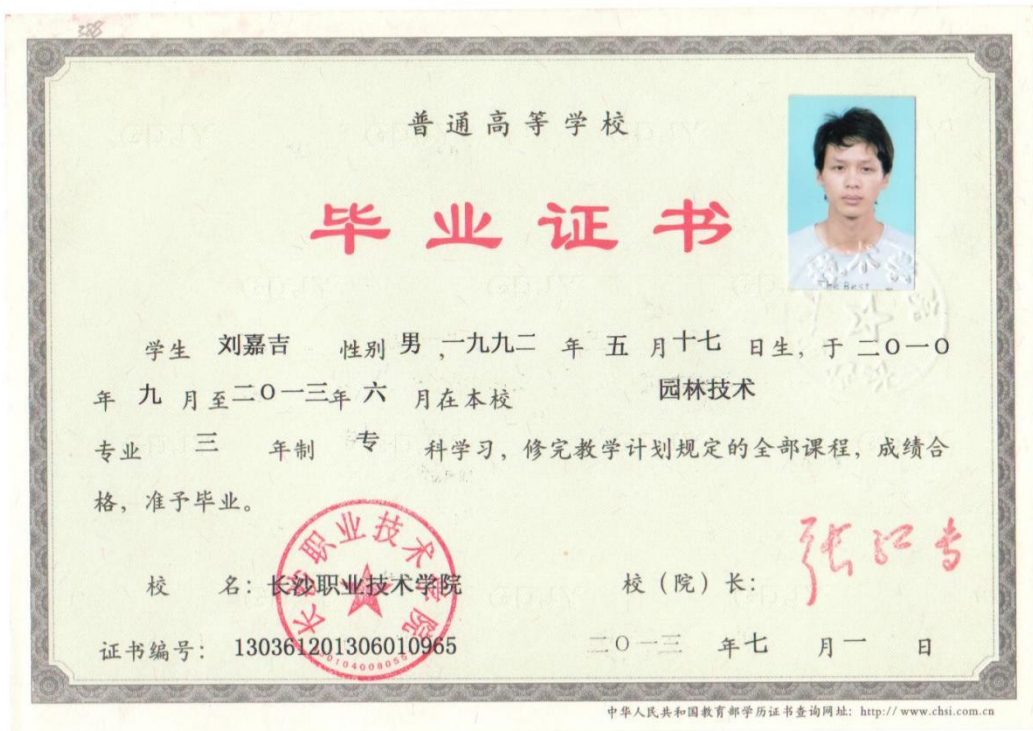 388
普通高等学校
毕业证书
The Best
学生 刘嘉吉 性别 男 ,一九九二 年 五 月十七 日生，于 二〇一〇
年 九 月至二〇一三年 六 月在本校 园林技术
专业 三 年制 专 科学习，修完教学计划规定的全部课程，成绩合
格，准予毕业。
长沙职业技术学院
校 名：长沙职业技术学院 校（院）长：
证书编号： 130361201306010965 二〇一三 年七 月一 日
中华人民共和国教育部学历证书查询网址：http://www.chsi.com.cn